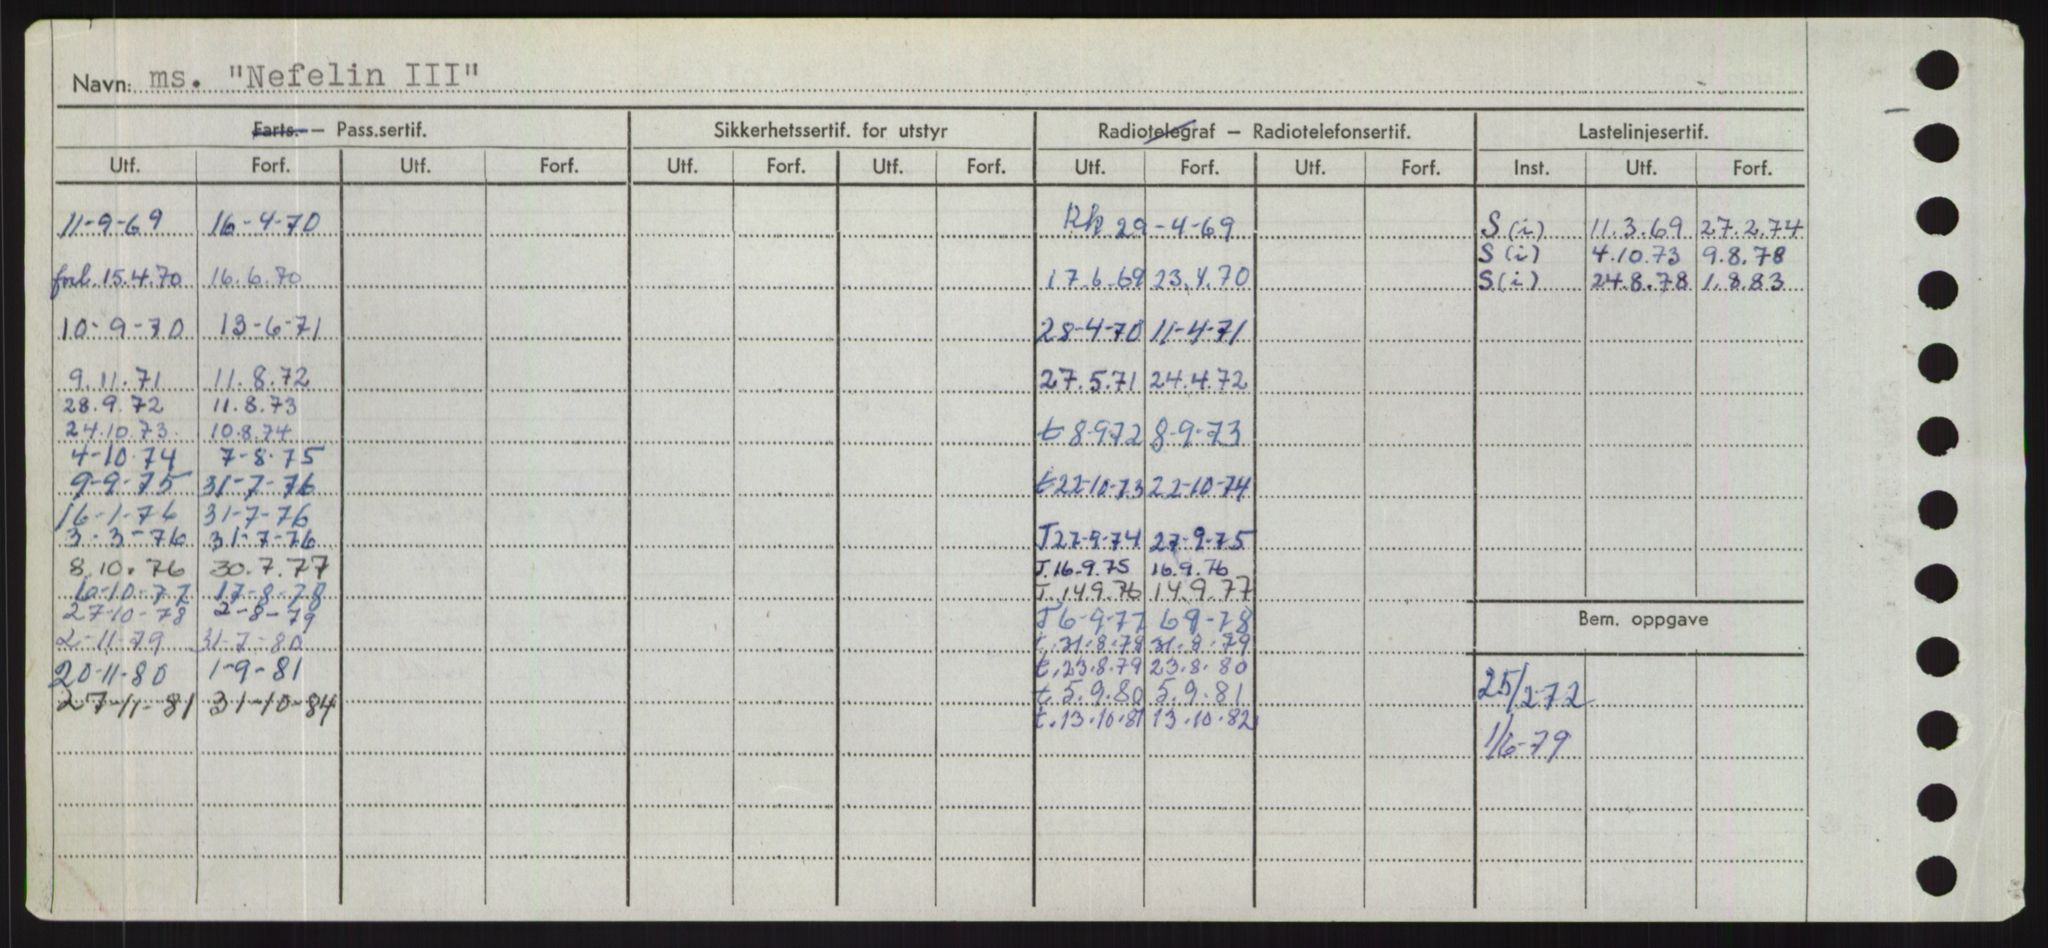 Navn: ms. "Nefelin III"
Farts. — Pass.sertif. Sikkerhetssertif. for utstyr Radiotelegraf — Radiotelefonsertif. Lastelinjesertif.
Utf. Forf. Utf. Forf. Utf. Forf. Utf. Forf. Utf. Forf. Utf. Forf. Inst. Utf. Forf.
11-9-69 16-4-70 Rh 29-4-69 S(i) 11.3.69 27.2.74
S(i) 4.10.73 9.8.78
forl. 15.4.70 16.6.70 17.6.69 23.4.70 S(i) 24.8.78 1.8.83
10-9-70 13-6-71 28-4-70 11-4-71
9.11.71 11.8.72 27.5.71 24.4.72
28.9.72 11.8.73
24.10.73. 10.8.74 t 8-972 8-9-73
4-10-74 7-8-75
9-9-75 31-7-76 t 22-10-73 22-10-74
16-1-76 31-7-76
3-3-76 31-7-76 T 27-9-74 27-9-75
8.10.76 30.7.77 T. 16.9.75 16.9.76
6-10-77 17-8-78 T. 149.76 149.77
27-10-78 2-8-79 T 6-9-77 69-78
Bem. oppgave
2-11-79 31-7-80 t. 31.8.78 31.8.79
20-11-80 1-9-81 t. 23.8.79 23.8.80
27-11-81 31-10-84 t. 5.9.80 5.9.81 25/2-72
t. 13.10.81 13.10.82
1/6-79